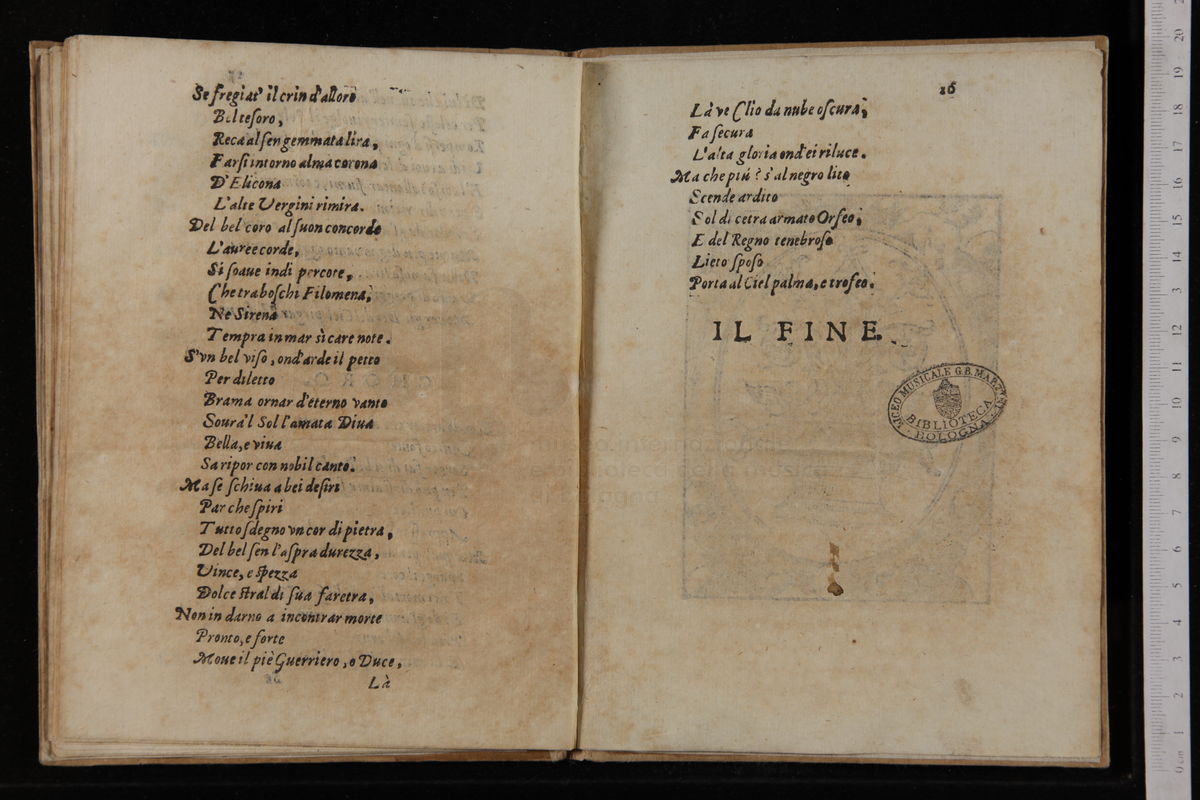 Se fregiat' il crin d'alloro
Bel tesoro,
Reca al sen gemmata lira,
Farsi intorno alma corona
D'Elicona
L'alte Vergini rimira.
Del bel coro al suon concorde
L'auree corde,
Si soaue indi percote,
Che tra boschi Filomena,
Ne Sirena
Tempra in mar sì care note.
S'vn bel viso, ond'arde il petto
Per diletto
Brama ornar d'eterno vanto
Soura'l Sol l'amata Diua
Bella, e viua
Sa ripor con nobil canto.
Ma se schiua a bei desiri
Par che spiri
Tutto sdegno vn cor di pietra,
Del bel sen l'aspra durezza,
Vince, e spezza
Dolce stral di sua faretra,
Non in darno a incontrar morte
Pronto, e forte
Moue il piè Guerriero, o Duce,
Là
16
Là ve Clio da nube oscura,
Fa secura
L'alta gloria ond'ei riluce.
Ma che piú? s'al negro lito
Scende ardito
Sol di cetra armato Orfeo,
E del Regno tenebroso
Lieto sposo
Porta al Ciel palma, e trofeo.
IL FINE.
LICEO MUSICALE G.B. MARTINI
BIBLIOTECA
BOLOGNA